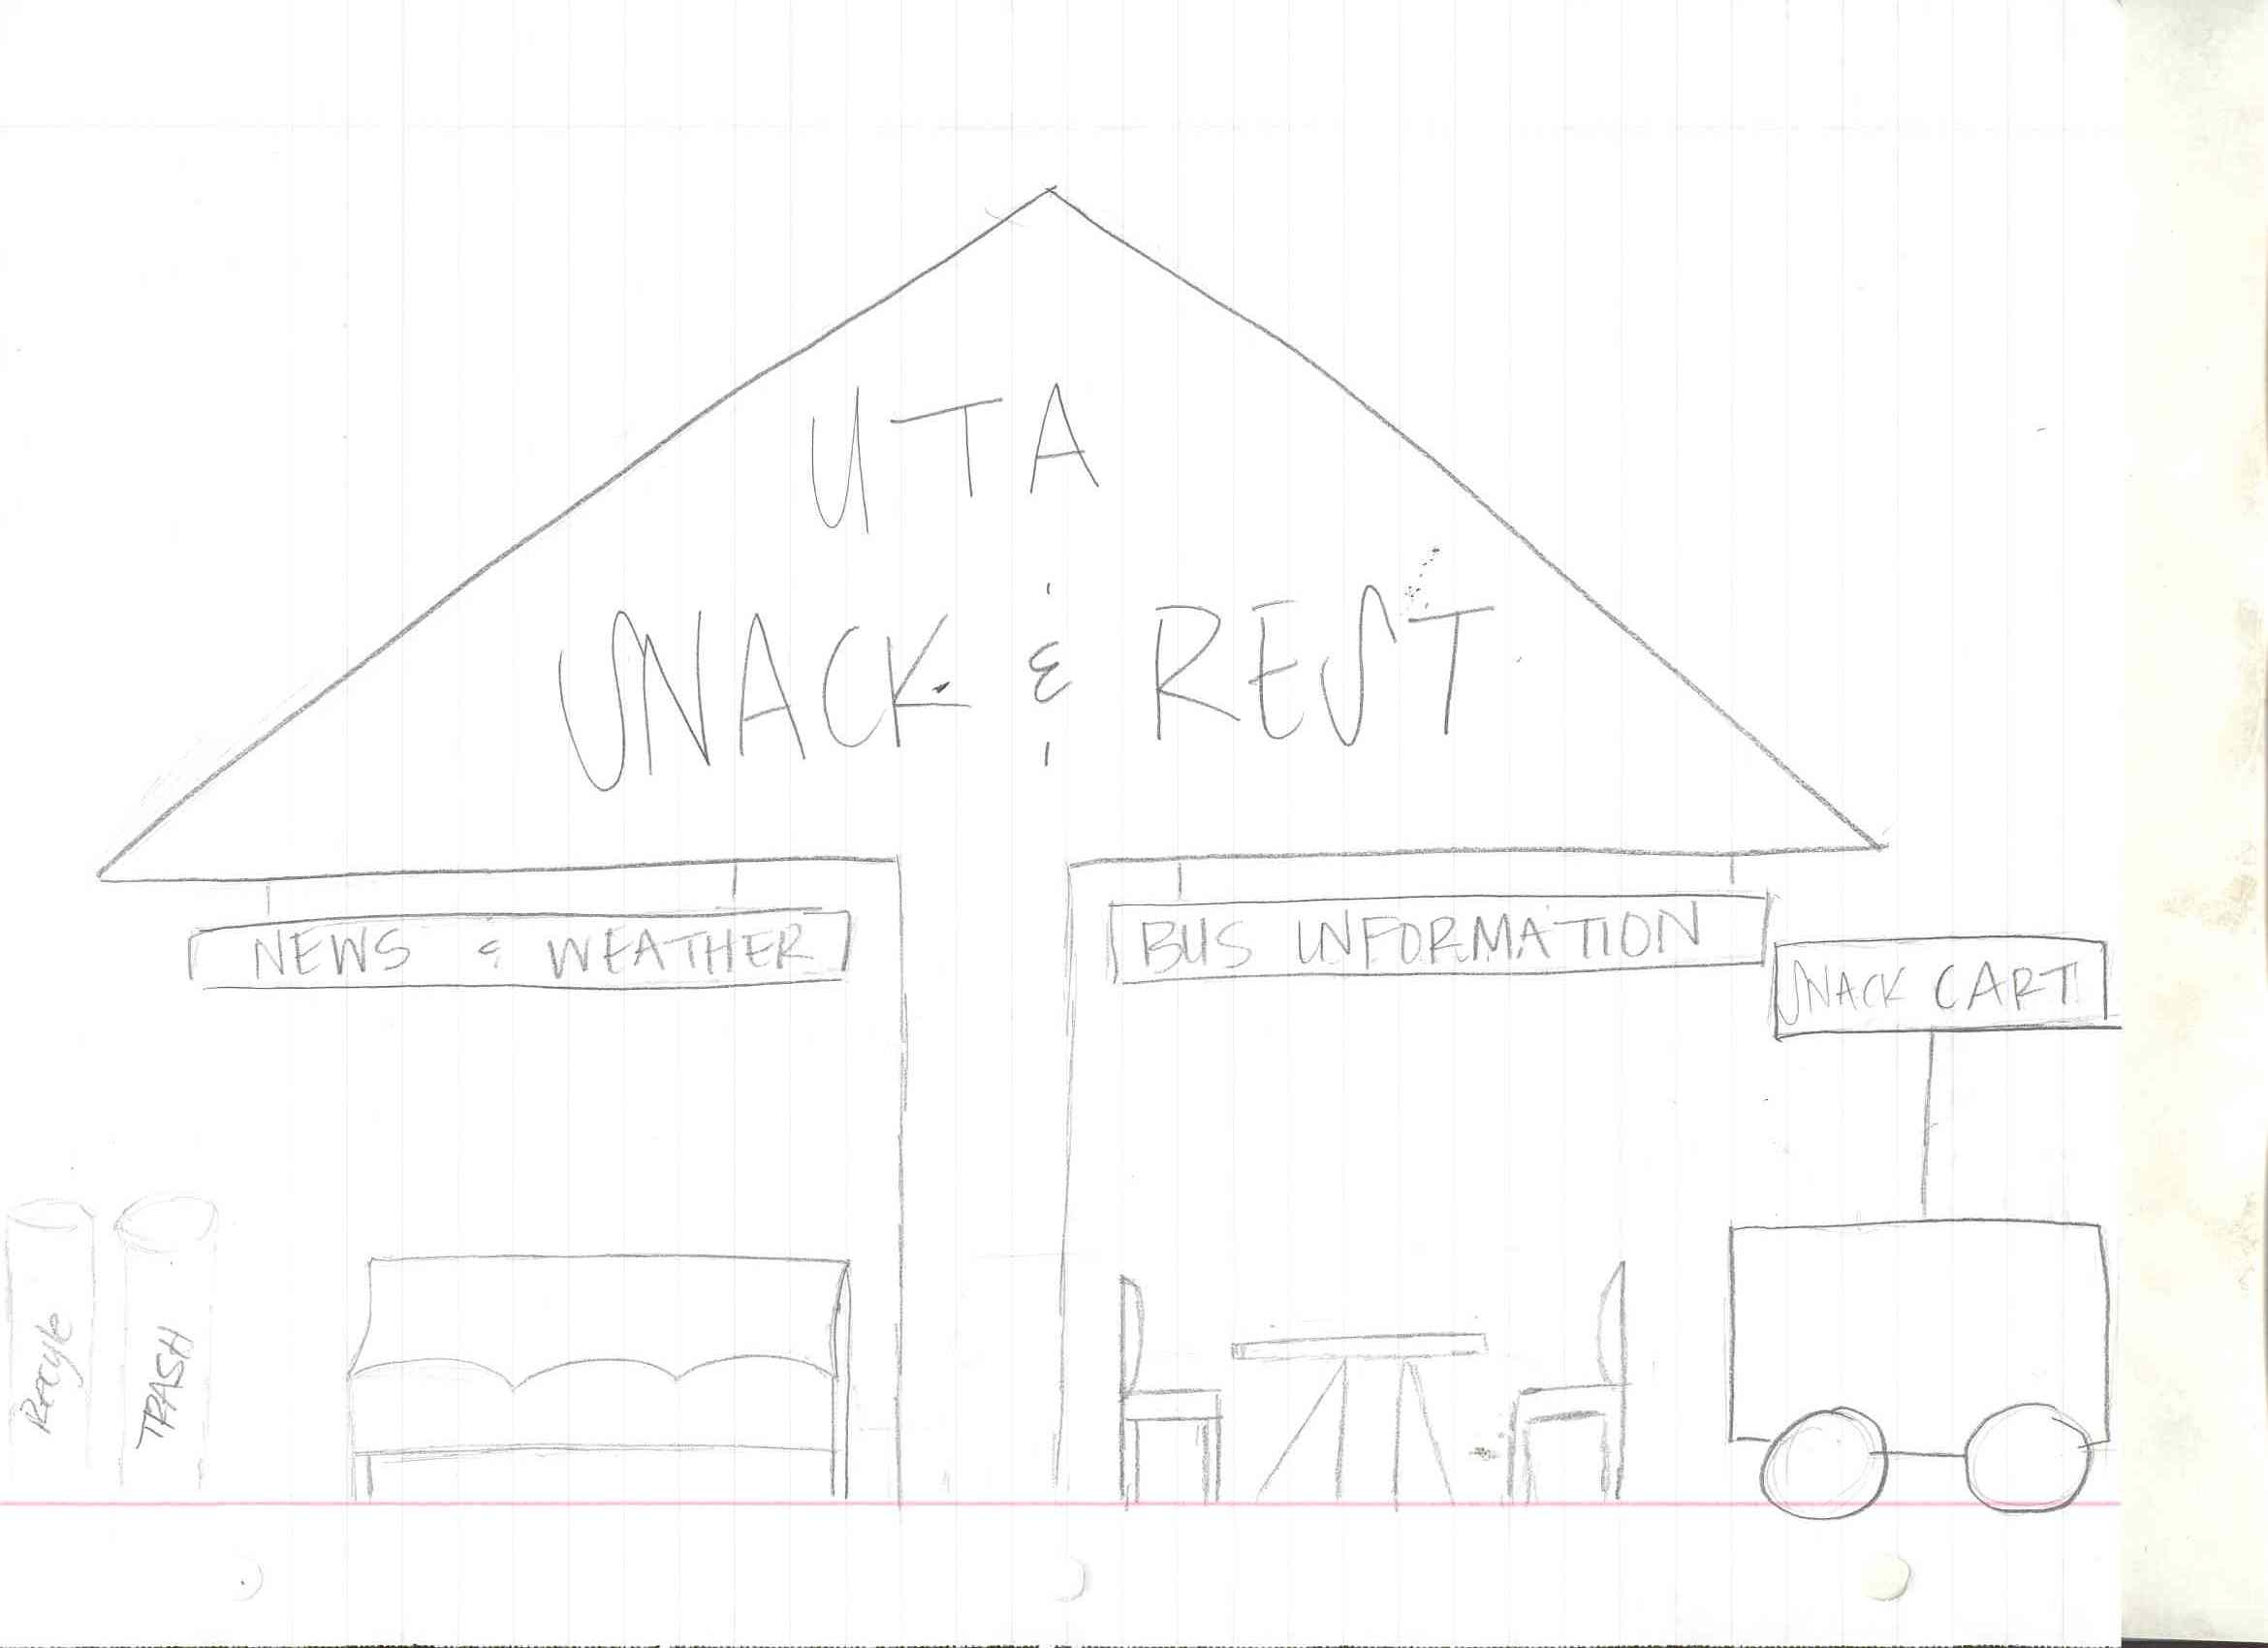 UTA
SNACK & REST
NEWS & WEATHER
BUS INFORMATION
SNACK CART
Recycle
TRASH